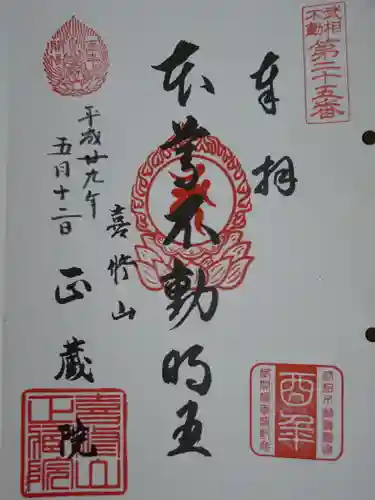 武相
不動
第二十五番
奉拝
本尊不動明王
喜修山
正蔵院
平成廿九年
五月十二日
酉年
喜修山
正蔵院